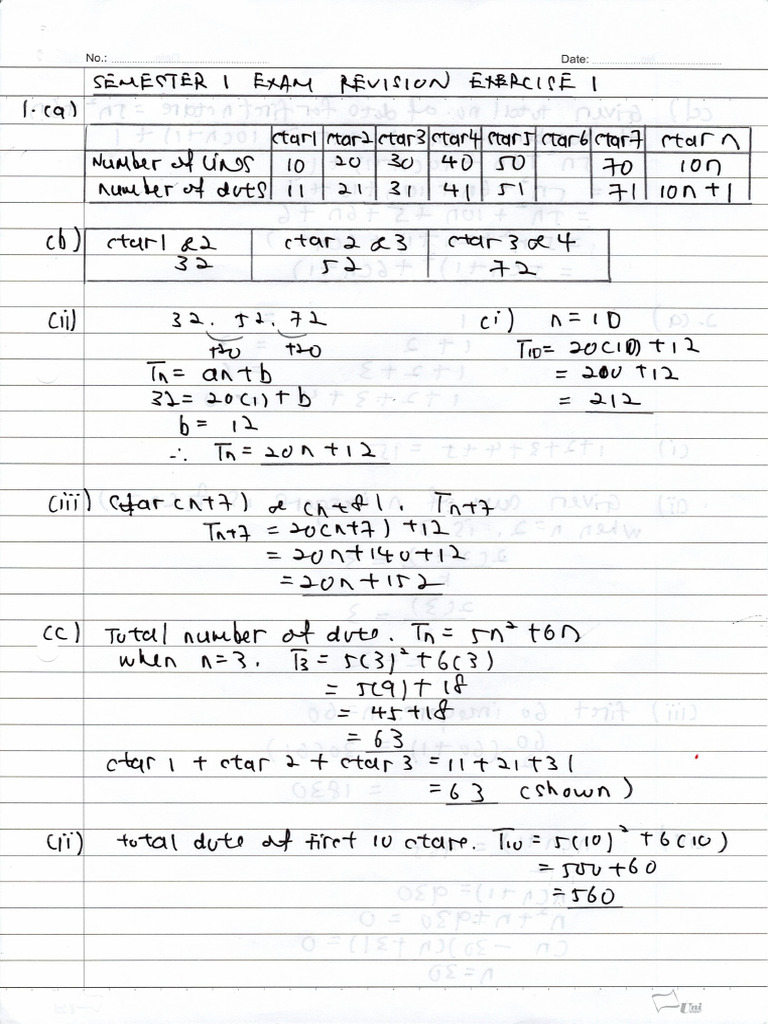 No.:
Date:
SEMESTER 1 EXAM REVISION EXERCISE 1
1.(a)
star1 star2 star3 star4 star5 star6 star7 star n
Number of lines 10 20 30 40 50 70 10n
number of dots 11 21 31 41 51 71 10n+1
(b) star1 &2 star 2 &3 star 3 & 4
32 52 72
(ii) 32, 52, 72
+20 +20
Tn = an+b
32 = 20(1) + b
b = 12
∴ Tn = 20n+12
(i) n = 10
T10 = 20(10) + 12
= 200 + 12
= 212
(iii) star (n+7) & (n+8). Tn+7
Tn+7 = 20(n+7) + 12
= 20n+140+12
= 20n+152
(c) Total number of dots. Tn = 5n² + 6n
when n=3. T3 = 5(3)² + 6(3)
= 5(9) + 18
= 45+18
= 63
star 1 + star 2 + star 3 = 11+21+31
= 63 (shown)
(ii) total dots of first 10 stars. T10 = 5(10)² + 6(10)
= 500+60
= 560
Uni